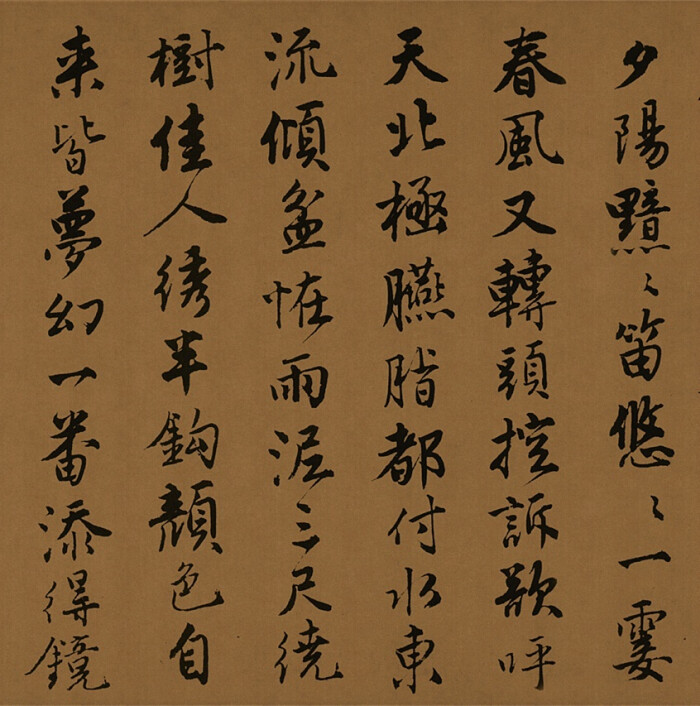 夕陽黯〻笛悠〻一霎
春風又轉頭控訴欲呼
天北極臙脂都付水東
流傾盆怪雨泥三尺繞
樹佳人綉半鈎顏色自
来皆夢幻一番添得鏡